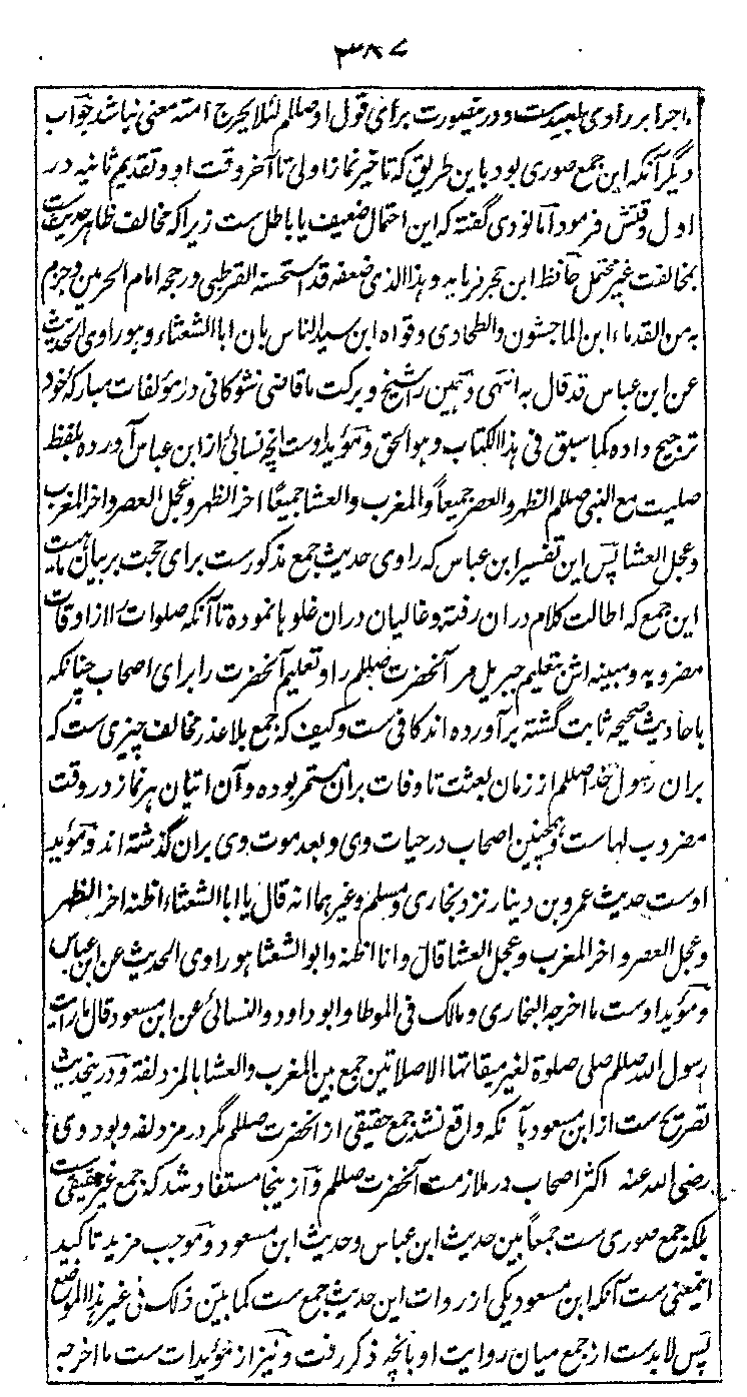 ۳۸۷
ماجرا بر راوی بعیدست و درینصورت برای قول او صللم لئلا یحرج امته معنی نباشد جواب
دیگر آنکه این جمع صوری بود باین طریق که تاخیر نماز اولی تا آخر وقت او و تقدیم ثانیه در
اول وقتش فرمود اما نووی گفته که این احتمال ضعیف یا باطل ست زیراکه مخالف ظاهر حدیث ست
بمخالفت غیر محتمل حافظ ابن حجر فرماید و هذا الذی ضعفه قد استحسنه القرطبی و رجحه امام الحرمین و جزم
به من القدماء ابن الماجشون والطحاوی و قواه ابن سید الناس بان ابا الشعثاء و هو راوی الحدیث
عن ابن عباس قد قال به انتهی و همین را شیخ و برکت ما قاضی شوکانی در مؤلفات مبارکۀ خود
ترجیح داده کما سبق فی هذا الکتاب و هو الحق و مؤید اوست انچه نسائی از ابن عباس آورده بلفظ
صلیت مع النبی صللم الظهر والعصر جمیعاً والمغرب والعشا جمیعاً اخر الظهر و عجل العصر و اخر المغرب
و عجل العشا پس این تفسیر ابن عباس که راوی حدیث جمع مذکورست برای حجت بر بیان ماهیت
این جمع که اطالت کلام دران رفته و غالیان دران غلوها نموده تا آنکه صلوات را از اوقات
مضروبه و مبینه اش بتعلیم جبریل مر آنحضرت صللم را و تعلیم آنحضرت را برای اصحاب چنانکه
باحادیث صحیحه ثابت گشته برآورده اند کافی ست و کیف که جمع بلا عذر مخالف چیزی ست که
بران رسول خدا صللم از زمان بعثت تا وفات بران مستمر بوده و آن اتیان هر نماز در وقت
مضروب لهاست و همچنین اصحاب در حیات وی و بعد موت وی بران گذشته اند و مؤید
اوست حدیث عمرو بن دینار نزد بخاری و مسلم و غیرهما انه قال یا ابا الشعثاء اظنه اخر الظهر
و عجل العصر و اخر المغرب و عجل العشا قال و انا اظنه و ابو الشعثا هو راوی الحدیث عن ابن عباس
و مؤید اوست ما اخرجه البخاری و مالک فی الموطا و ابو داود والنسائی عن ابن مسعود قال ما رایت
رسول الله صللم صلی صلوة لغیر میقاتها الا صلاتین جمع بین المغرب والعشا بالمزدلفة و درینحدیث
تصریح ست از ابن مسعود بآنکه واقع نشد جمع حقیقی از آنحضرت صللم مگر در مزدلفه و بود وی
رضی الله عنه اکثر اصحاب در ملازمت آنحضرت صللم و از ینجا مستفاد شد که جمع غیر حقیقی ست
بلکه جمع صوری ست جمعاً بین حدیث ابن عباس و حدیث ابن مسعود و موجب مزید تاکید
اینمعنی ست آنکه ابن مسعود یکی از روات این حدیث جمع ست کما بین ذلک فی غیر هذا الموضع
پس لابدست از جمع میان روایت او بآنچه ذکر رفت و نیز از مؤیدات ست ما اخرجه